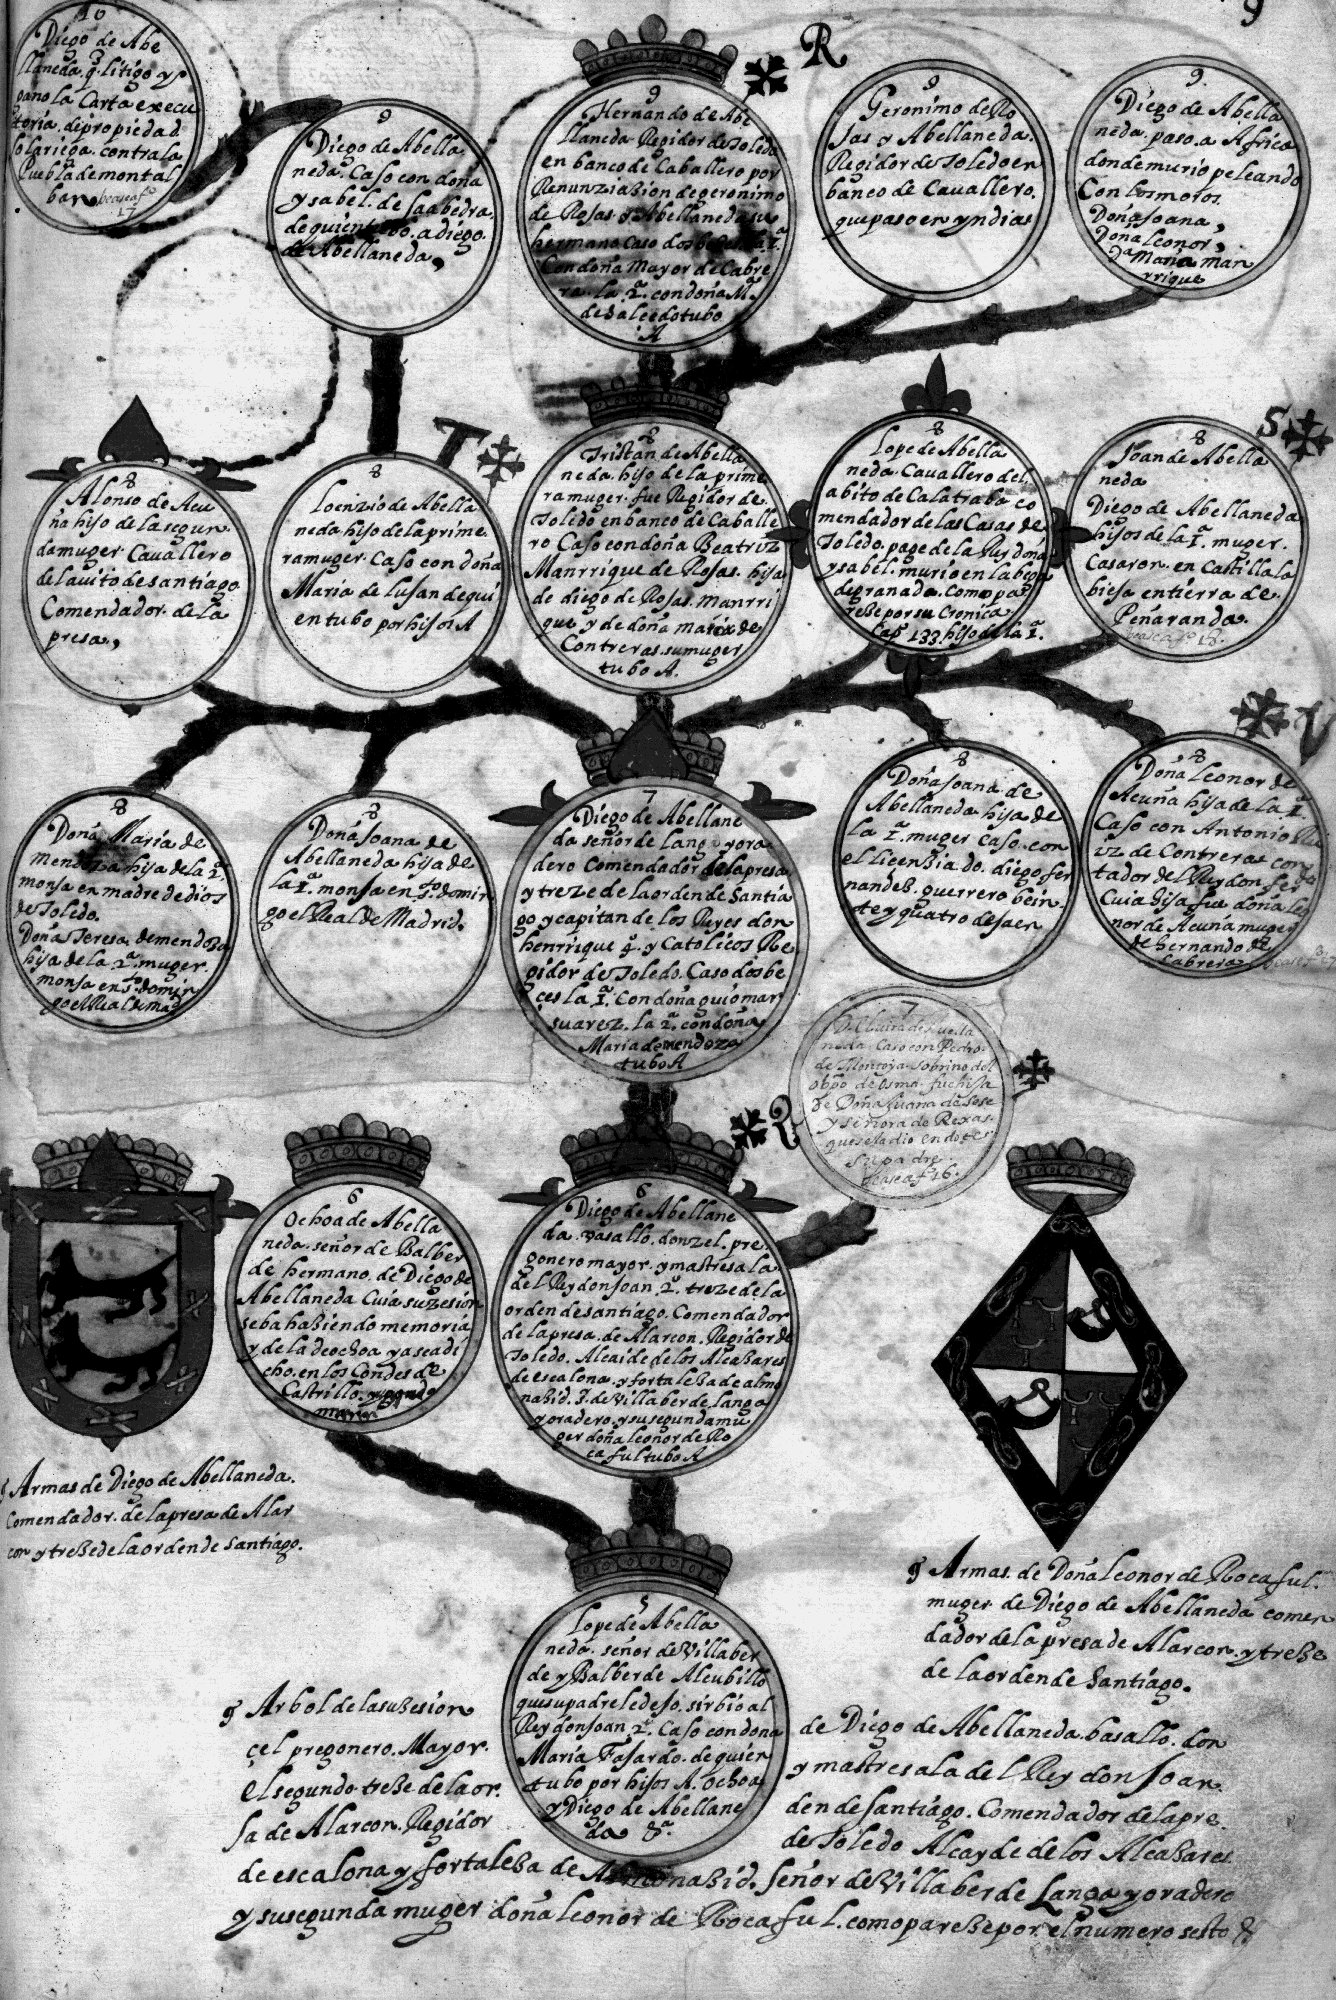 9
10
Diego de Abe
llaneda. q. litigo y
gano la Carta execu
toria. de propiedad
solariega. contra la
Puebla de montal
ban veasea f.
17
9
Diego de Abella
neda. Caso con doña
ysabel. de saabedra.
de quien tubo. a diego.
de Abellaneda,
R
9
Hernando de Abe
llaneda Regidor de Toledo
en banco de Caballero por
Renunziazion de geronimo
de Rojas. y Abellaneda su
hermano caso dos beçes. la 1ª
Con doña Mayor de Cabre
ra. la 2ª. con doña Mª.
de salcedo tubo
A
9
Geronimo de Ro
jas y Abellaneda.
Regidor de Toledo en
banco de Cavallero.
que paso en yndias
9.
Diego de Abella
neda. paso. a Africa
donde murio peleando
Con los moros.
Doña Joana,
Doña leonor,
Dª Maria man
rrique
8
Alonso de Acu
ña hijo de la segun
da muger. Cavallero
de la vito de santiago.
Comendador. de la
presa,
T
8
lorenzio de Abella
neda hijo de la prime.
ra muger. Caso con doña
Maria de lujan de qui
en tubo por hijos A
8
Tristan de Abella
neda. hijo de la prime
ra muger. fue Regidor de.
Toledo en banco de Caballe
ro Caso con doña Beatriz
Manrrique de Rojas. hija
de diego de Rojas. Manrri
que y de doña maria de
Contreras. su muger
tubo A.
8
lope de Abella
neda Cavallero del.
abito de Calatraba co
mendador de las Casas de
Toledo. page de la Rna doña
ysabel. murio en la bega
de granada. como pa
reze por su Cronica
Cap. 133. hijo de la 1ª.
S
8
Joan de Abella
neda
Diego de Abellaneda
hijos de la 1ª. muger.
Casaron. en Castilla la
bieja en tierra de.
Peñaranda.
veasea fº 18.
8
Doña Maria de
mendoza hija de la 2ª.
monja en madre de dios
de Toledo.
Doña Teresa. de mendoza
hija de la 2ª. muger.
monja en Sº. domin
go el Real de mad
8
Doña Joana de
Abellaneda hija de
la 1ª. monja en Sº. domin
go el Real de Madrid.
7
Diego de Abellane
da señor de langa y ora
dero Comendador de la presa
y treze de la orden de Santia
go. y capitan de los Reyes don
henrrique 4º. y Catolicos Re
gidor de Toledo. Caso dos be
çes la 1ª. Con doña guiomar
suarez. la 2ª. con doña
Maria de mendoza
tubo A
8
Doña Joana de
Abellaneda hija de
la 1ª. muger caso. con
el licenzia do. diego fer
nandez. guerrero bein.
te y quatro de Jaen
V
8
Doña leonor de
Acuña hija de la 1ª.
Caso con Antonio
de Contreras con
tador del Rey don fer
Cuia hija fue doña leo
nor de Acuña muger
de hernando de
Cabrera
7
Dª Elvira de Avella
neda caso con Pedro
de Montoya sobrino del
obpo de Osma. fue hija
de Doña Juana de sese
y señora de Rexas.
que se la dio en dote
su padre.
veasea fº 16.
6
Ochoa de Abella
neda. señor de Balber
de hermano. de Diego de
Abellaneda Cuia suzesion
se ba haziendo memoria
y de la de ochoa ya se a di
cho. en los Condes de
Castrillo.
6
Diego de Abellane
da. vasallo. donzel. pre.
gonero mayor. y mastresala
del Rey don Joan. 2º. treze de la
orden de santiago. Comendador
de la presa. de Alarcon. Regidor de
Toledo. Alcaide de los Alcazares
de escalona. y fortaleza de almo
nazid. S. de villaber de. langa
y oradero. y su segunda mu
ger doña leonor de Ro
ca ful tubo A
Armas de Diego de Abellaneda.
Comendador. de la presa de Alar
con y treze de la orden de santiago.
Armas. de Doña leonor de Rocaful.
muger de Diego de Abellaneda comen
dador de la presa de Alarcon. y treze
de la orden de santiago.
5
lope de Abella
neda. señor de villaber
de y Balber de Alcubillo
que su padre le dejo. sirbio al
Rey don Joan. 2º. Caso con doña
Maria Fajardo. de quien
tubo por hijos A. ochoa
y Diego de Abellane
da &ª.
Arbol de la suzesion de Diego de Abellaneda. basallo. don
çel pregonero. Mayor. y mastresala del Rey don Joan.
El segundo treze de la or. den de santiago. Comendador de la pre.
sa de Alarcon. Regidor de Toledo Alcayde de los Alcazares
de escalona y fortaleza de Almonazid. señor de villaber de Langa y oradero
y su segunda muger doña leonor de Rocaful. como pareze por. el numero sesto &